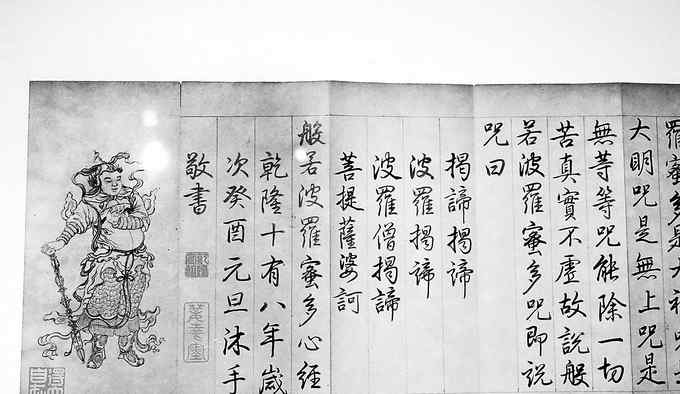 羅蜜多是大神咒
大明咒是無上咒是
無等等咒能除一切
苦真實不虛故說般
若波羅蜜多咒即說
咒曰
揭諦揭諦
波羅揭諦
波羅僧揭諦
菩提薩婆訶
般若波羅蜜多心經
乾隆十有八年歲
次癸酉元旦沐手
敬書